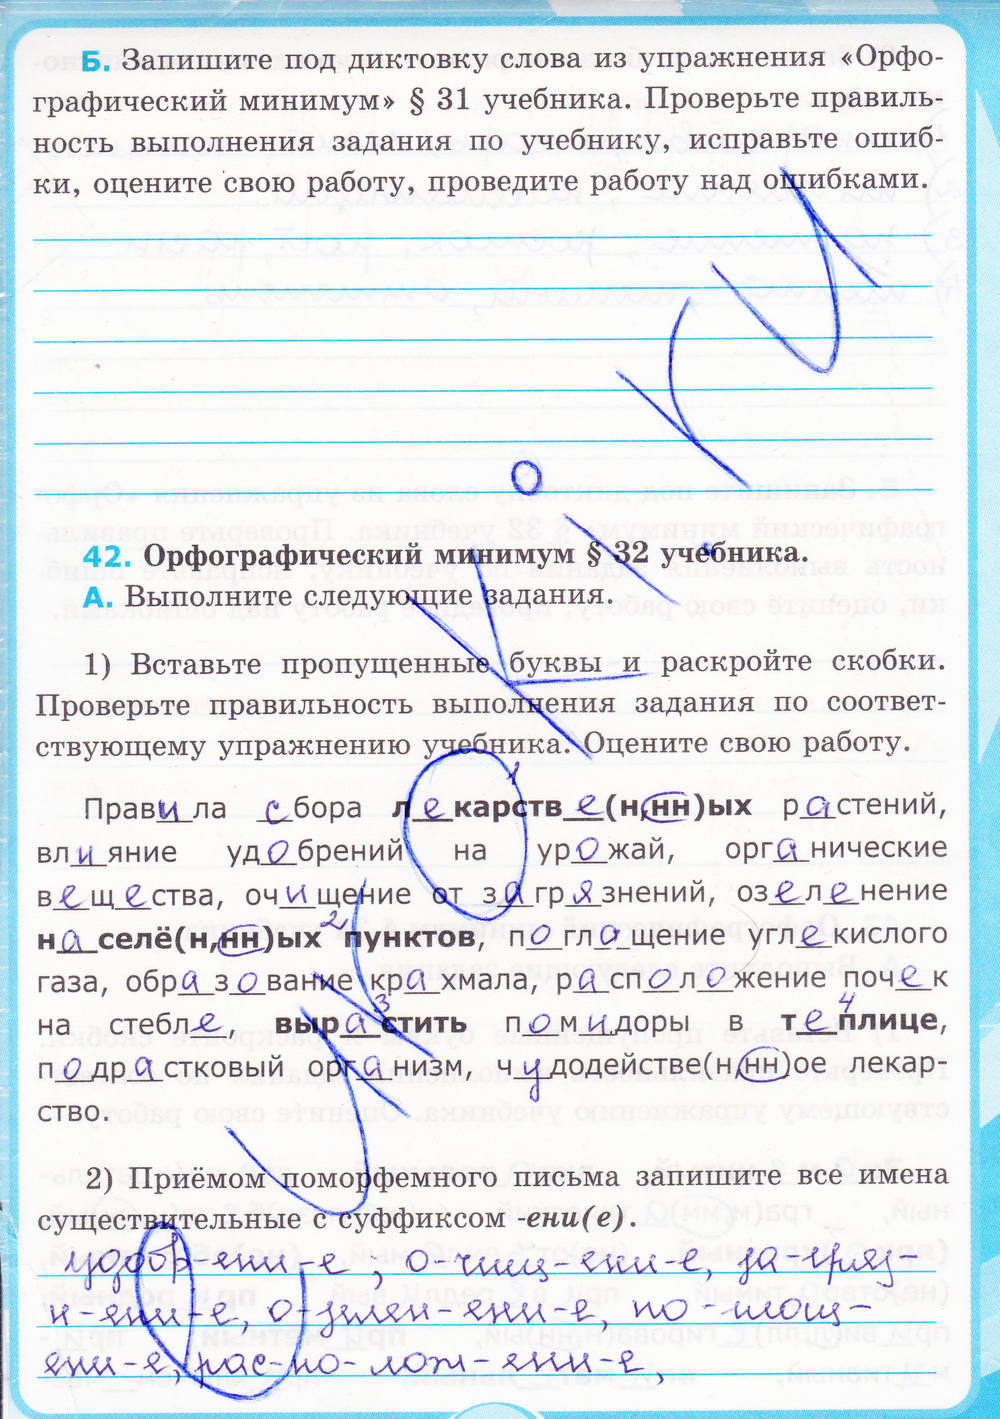 Б. Запишите под диктовку слова из упражнения «Орфо-
графический минимум» § 31 учебника. Проверьте правиль-
ность выполнения задания по учебнику, исправьте ошиб-
ки, оцените свою работу, проведите работу над ошибками.
42. Орфографический минимум § 32 учебника.
А. Выполните следующие задания.
1) Вставьте пропущенные буквы и раскройте скобки.
Проверьте правильность выполнения задания по соответ-
ствующему упражнению учебника. Оцените свою работу.
Правила сбора лекарстве(н,нн)ых¹ растений,
влияние удобрений на урожай, органические
вещества, очищение от загрязнений, озеленение
населё(н,нн)ых² пунктов, поглащение углекислого
газа, образование крахмала, расположение почек
на стебле, вырастить³ помидоры в теплице⁴,
подрастковый организм, чудодействе(н,нн)ое лекар-
ство.
2) Приёмом поморфемного письма запишите все имена
существительные с суффиксом -ени(е).
удобр-ени-е, о-чищ-ени-е, за-гряз
н-ени-е, о-зелен-ени-е, по-глощ-
ени-е, рас-по-лож-ени-е,